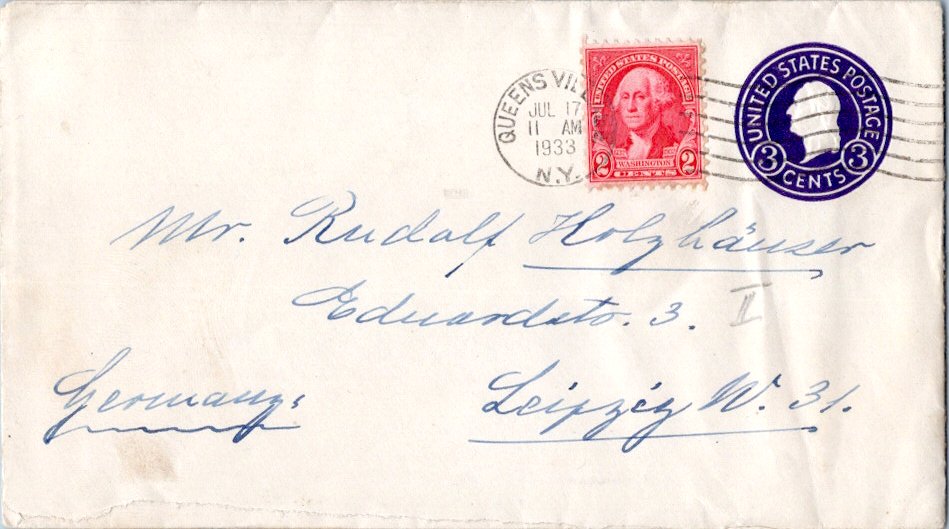 QUEENS VIL
JUL 17
11 AM
1933
N.Y.
UNITED STATES POSTAGE
2 WASHINGTON 2
CENTS
UNITED STATES POSTAGE
3 3
CENTS
Mr. Rudolf Holzhäuser
Eduardstr. 3. II
Germany.
Leipzig W. 31.